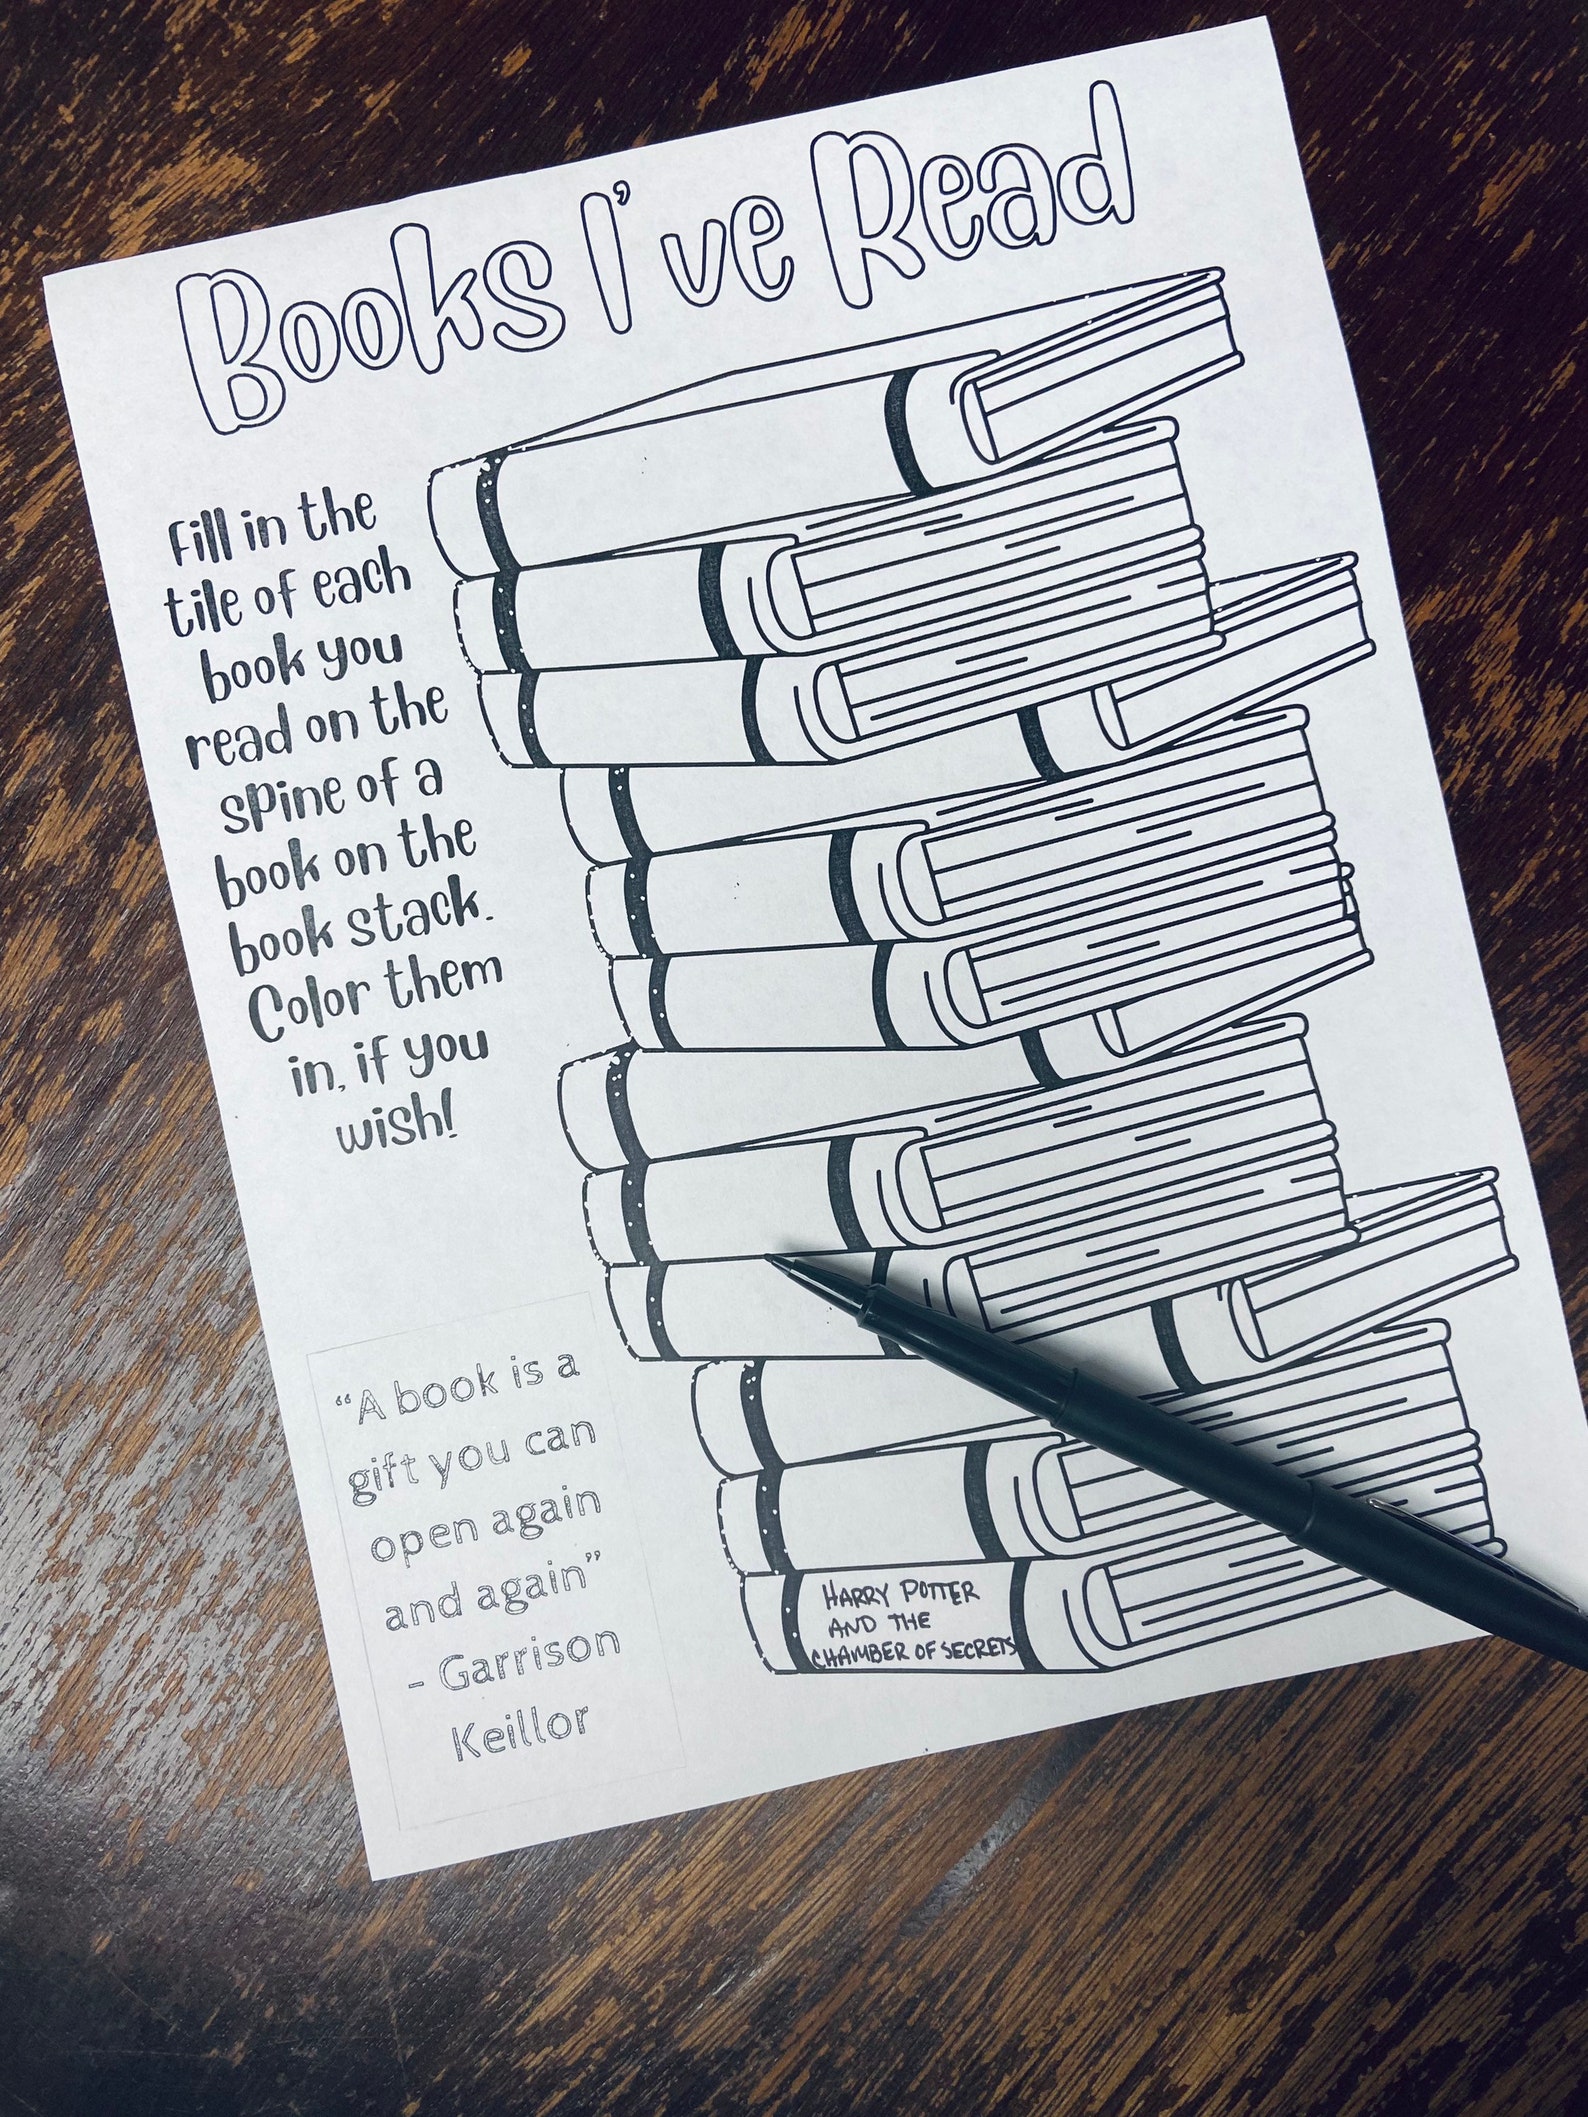 Books I've Read
Fill in the
tile of each
book you
read on the
spine of a
book on the
book stack.
Color them
in, if you
wish!
“A book is a
gift you can
open again
and again”
- Garrison
Keillor
HARRY POTTER
AND THE
CHAMBER OF SECRETS